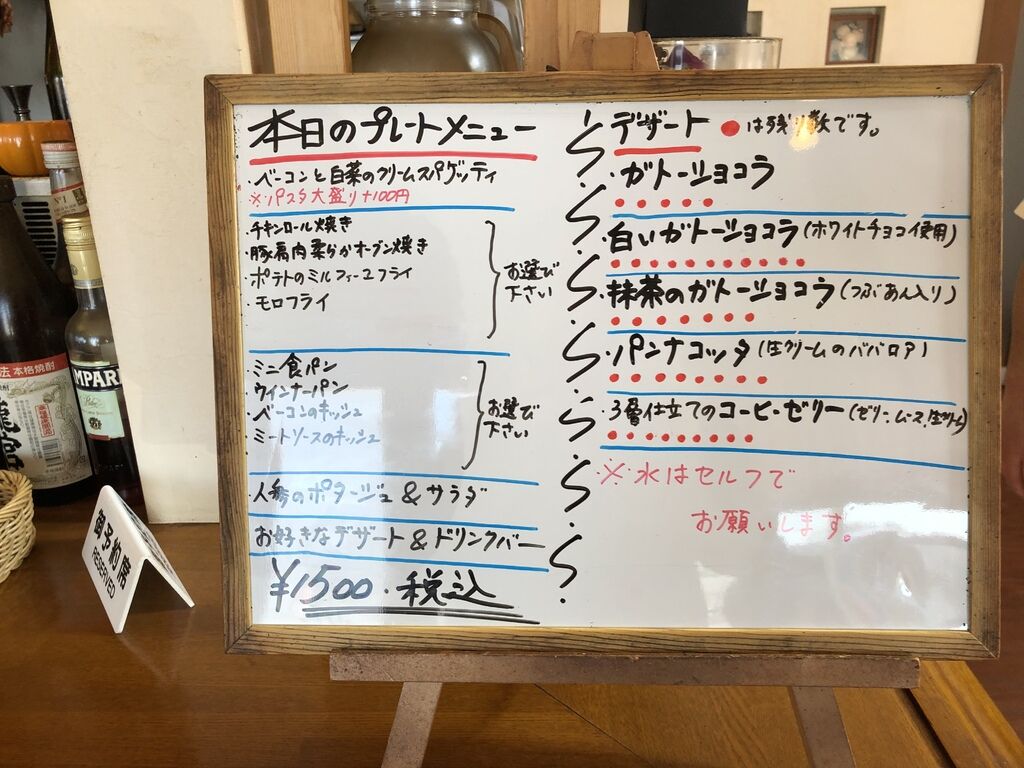 本日のプレートメニュー
・ベーコンと白菜のクリームスパゲッティ
※パスタ大盛り+100円
・チキンロール焼き
・豚肩肉柔らかオーブン焼き
・ポテトのミルフィーユフライ
・モロフライ
お選び
下さい
・ミニ食パン
・ウインナーパン
・ベーコンのキッシュ
・ミートソースのキッシュ
お選び
下さい
・人参のポタージュ&サラダ
お好きなデザート&ドリンクバー
¥1500・税込
デザート ●は残り数です。
・ガトーショコラ
・白いガトーショコラ(ホワイトチョコ使用)
・抹茶のガトーショコラ(つぶあん入り)
・パンナコッタ(生クリームのババロア)
・3層仕立てのコーヒーゼリー(ゼリー、ムース、生クリーム)
※水はセルフで
お願いします。
御予約席
RESERVED
本格焼酎
MPARI